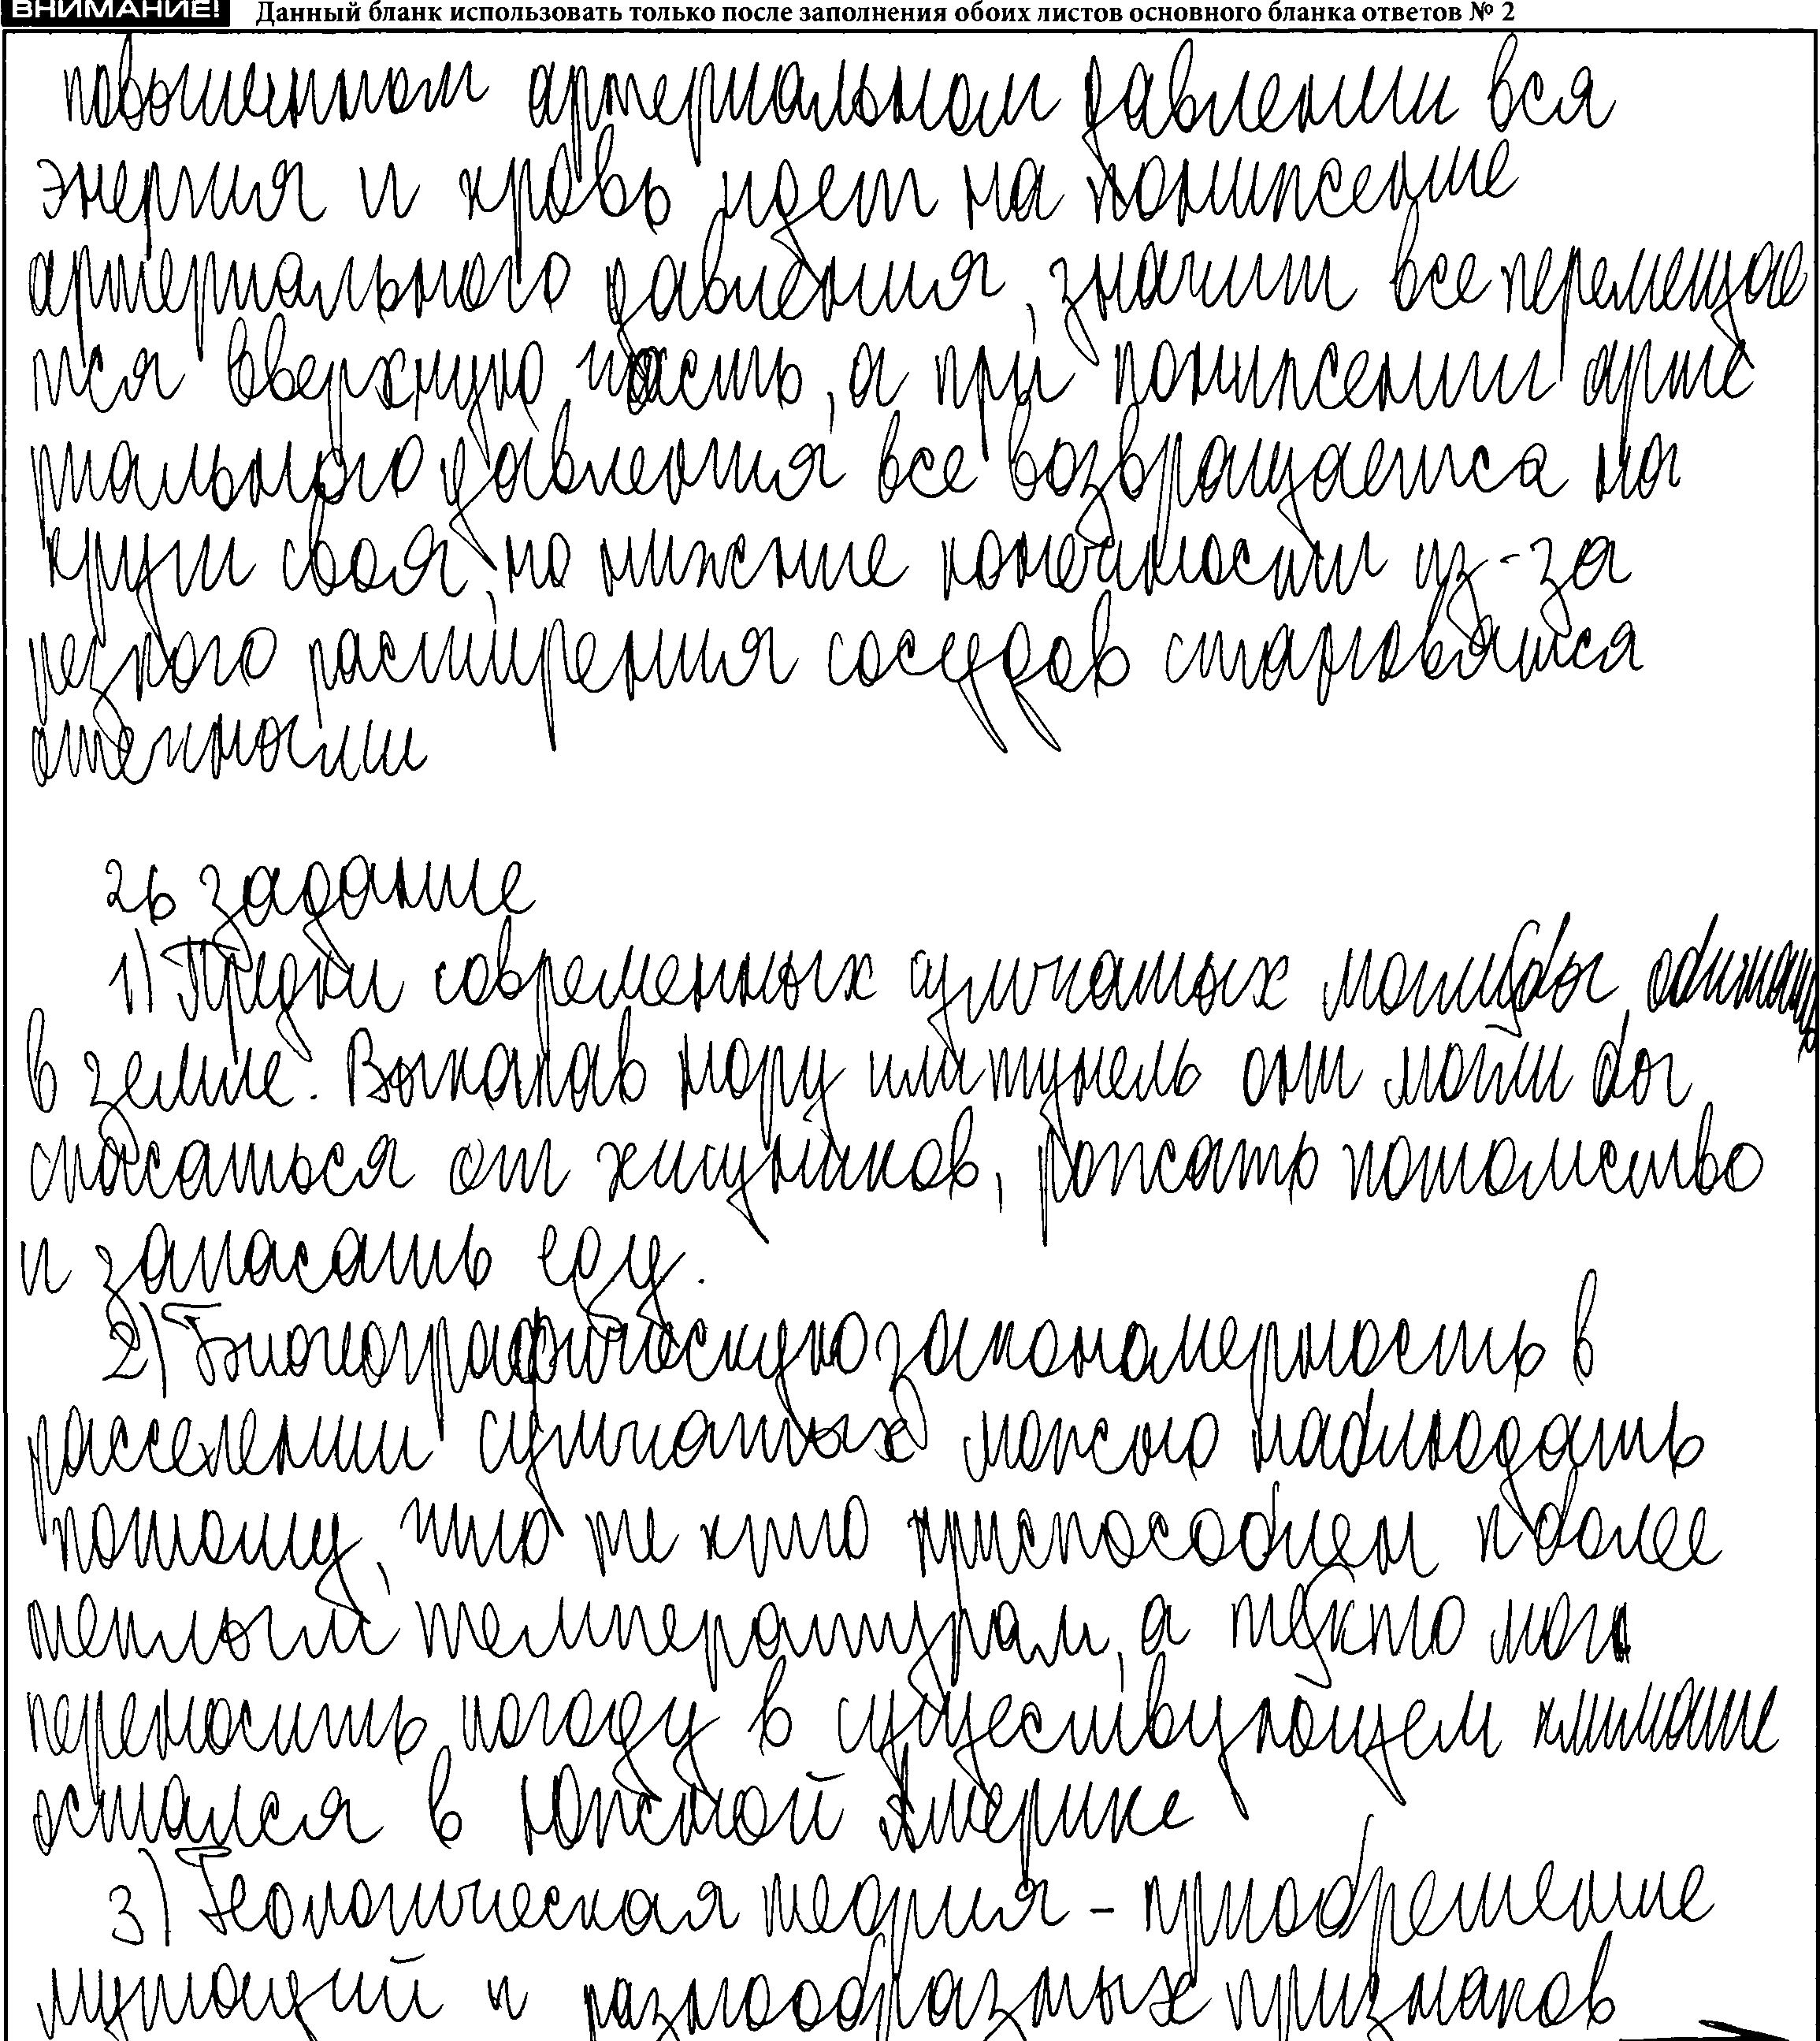 ВНИМАНИЕ! Данный бланк использовать только после заполнения обоих листов основного бланка ответов № 2
повышенном артериальном давлении вся
энергия и кровь идет на понижение
артериального давления, значит все перемещае
тся вверхнюю часть, а при понижении арте
риального давления все возвращается на
круги своя, но нижние конечности из-за
резкого расширения сосудов становятся
отечными
26 задание
1) Предки современных сумчатых могли бы обитать
в земле. Выкапав нору или тунель они могли бы
спасаться от хищников, рожать потомство
и запасать еду.
2) Биогеографическую закономерность в
расселении сумчатых можно наблюдать
потому, что те кто приспособлен к более
теплым температурам, а те кто мог
переносить погоду в существующем климате
остался в Южной Америке
3) Геологическая теория - приобретение
мутаций и разнообразных признаков